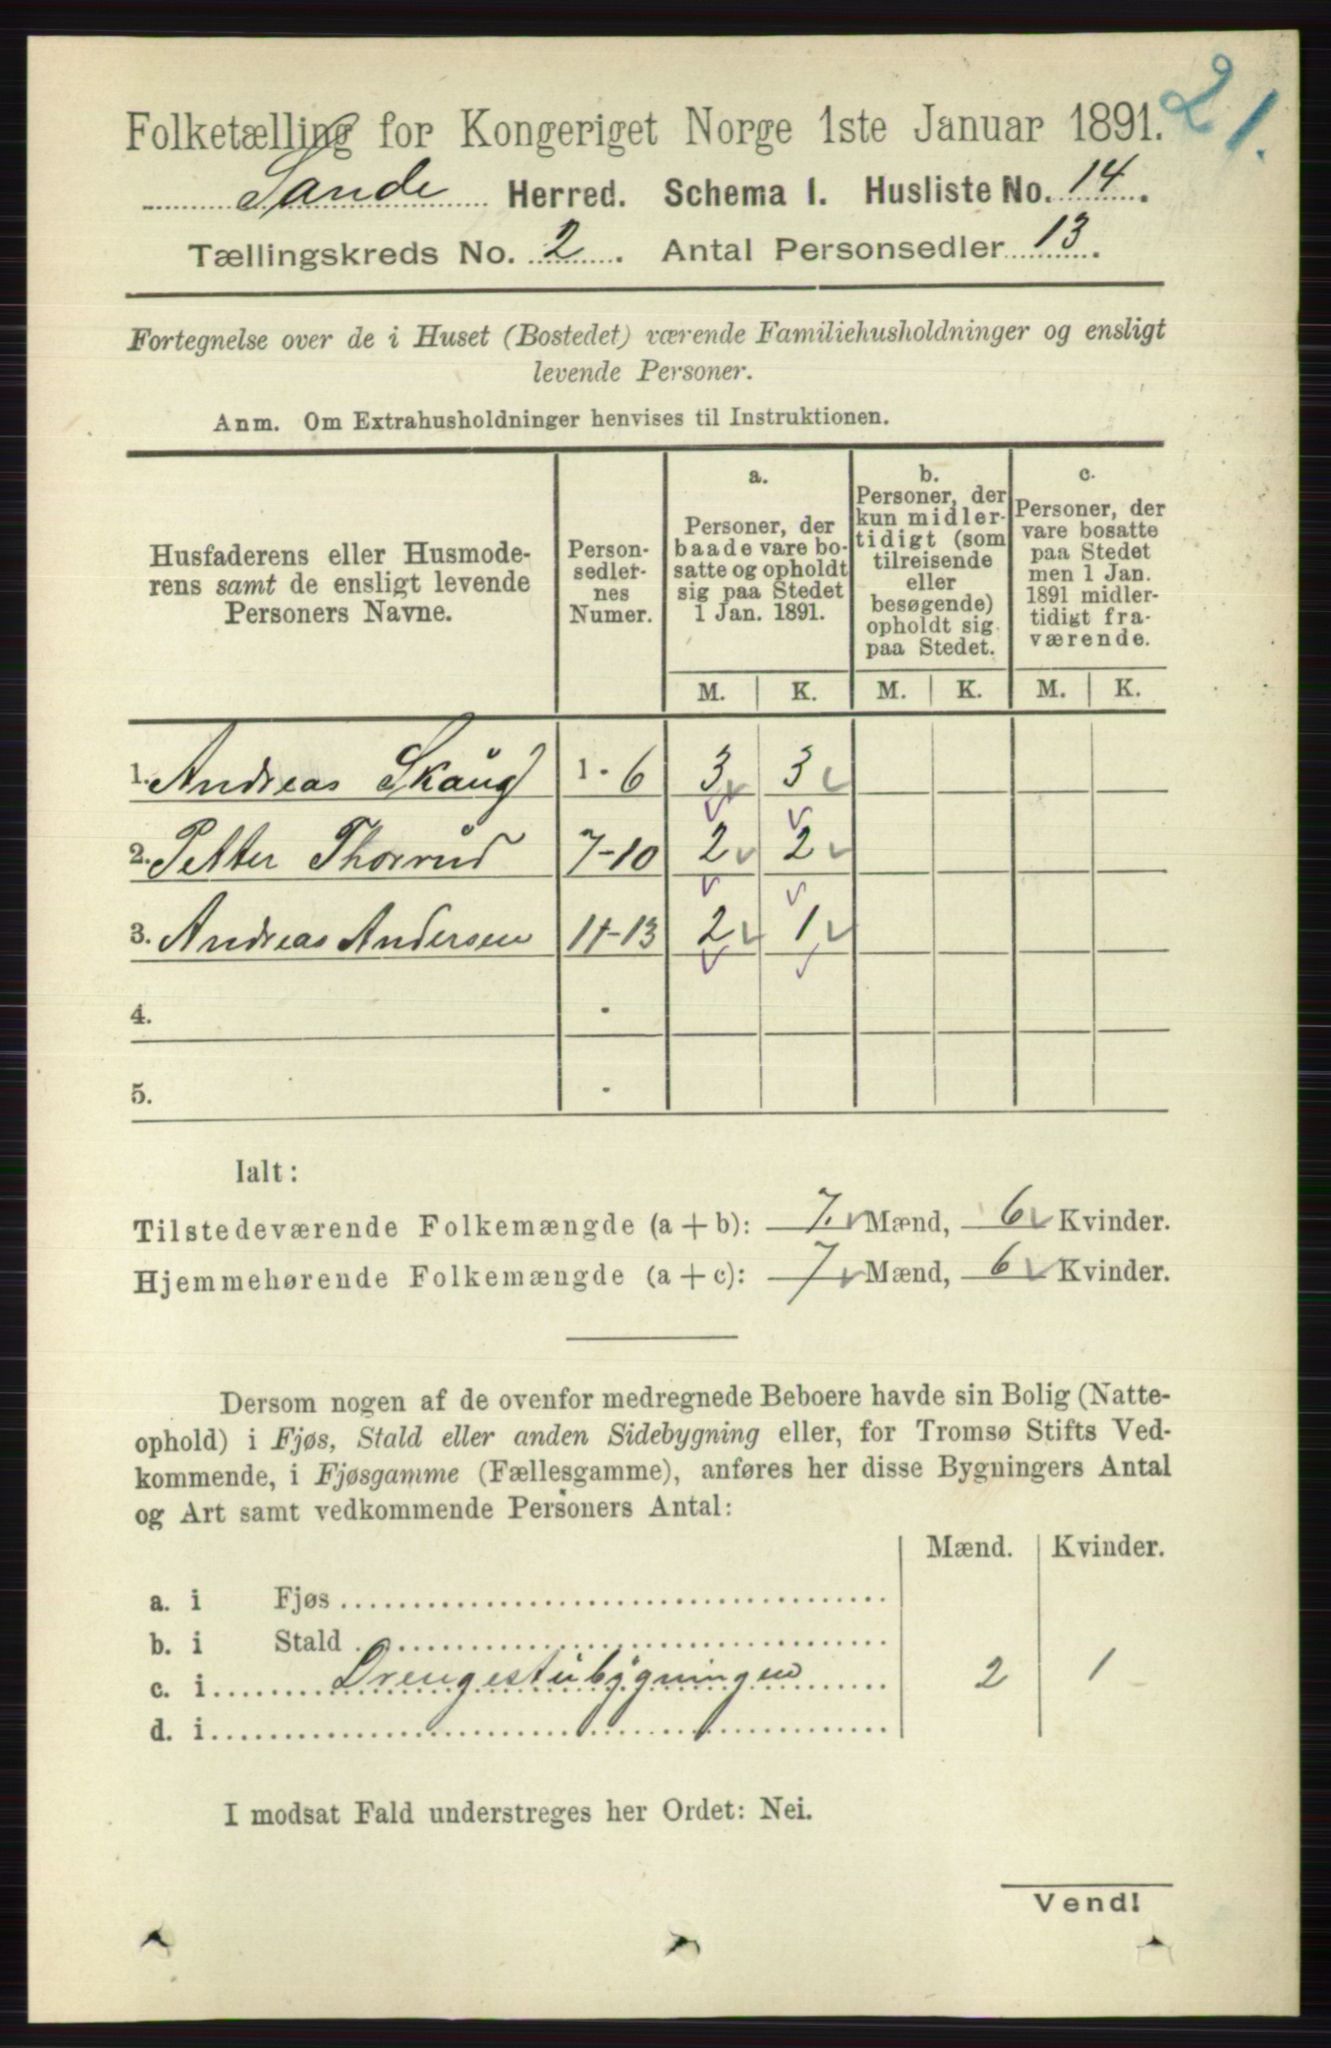 21.
Folketælling for Kongeriget Norge 1ste Januar 1891.
Sande Herred. Schema 1. Husliste No. 14.
Tællingskreds No. 2. Antal Personsedler 13.
Fortegnelse over de i Huset (Bostedet) værende Familiehusholdninger og ensligt
levende Personer.
Anm. Om Extrahusholdninger henvises til Instruktionen.
Husfaderens eller Husmode-
rens samt de ensligt levende
Personers Navne.
Person-
sedler-
nes
Numer.
a.
Personer, der
baade vare bo-
satte og opholdt
sig paa Stedet
1 Jan. 1891.
b.
Personer, der
kun midler-
tidigt (som
tilreisende
eller
besøgende)
opholdt sig
paa Stedet.
c.
Personer, der
vare bosatte
paa Stedet
men 1 Jan.
1891 midler-
tidigt fra-
værende.
M. K. M. K. M. K.
1. Andreas Skaug 1 - 6 3 3
2. Petter Thorrud 7-10 2 2
3. Andreas Andersen 11-13 2 1
4. -
5. -
Ialt:
Tilstedeværende Folkemængde (a + b): 7 Mænd, 6 Kvinder.
Hjemmehørende Folkemængde (a + c): 7 Mænd, 6 Kvinder.
Dersom nogen af de ovenfor medregnede Beboere havde sin Bolig (Natte-
ophold) i Fjøs, Stald eller anden Sidebygning eller, for Tromsø Stifts Ved-
kommende, i Fjøsgamme (Fællesgamme), anføres her disse Bygningers Antal
og Art samt vedkommende Personers Antal:
Mænd. Kvinder.
a. i Fjøs
b. i Stald
c. i Drengestubygningen 2 1
d. i
I modsat Fald understreges her Ordet: Nei.
Vend!